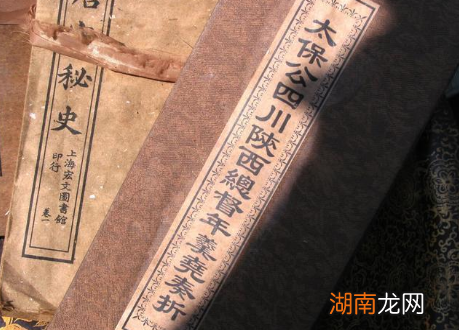 太保公四川陝西總督年羹堯奏折
秘史
上海宏文圖書館
印行
卷一
湖南龙网